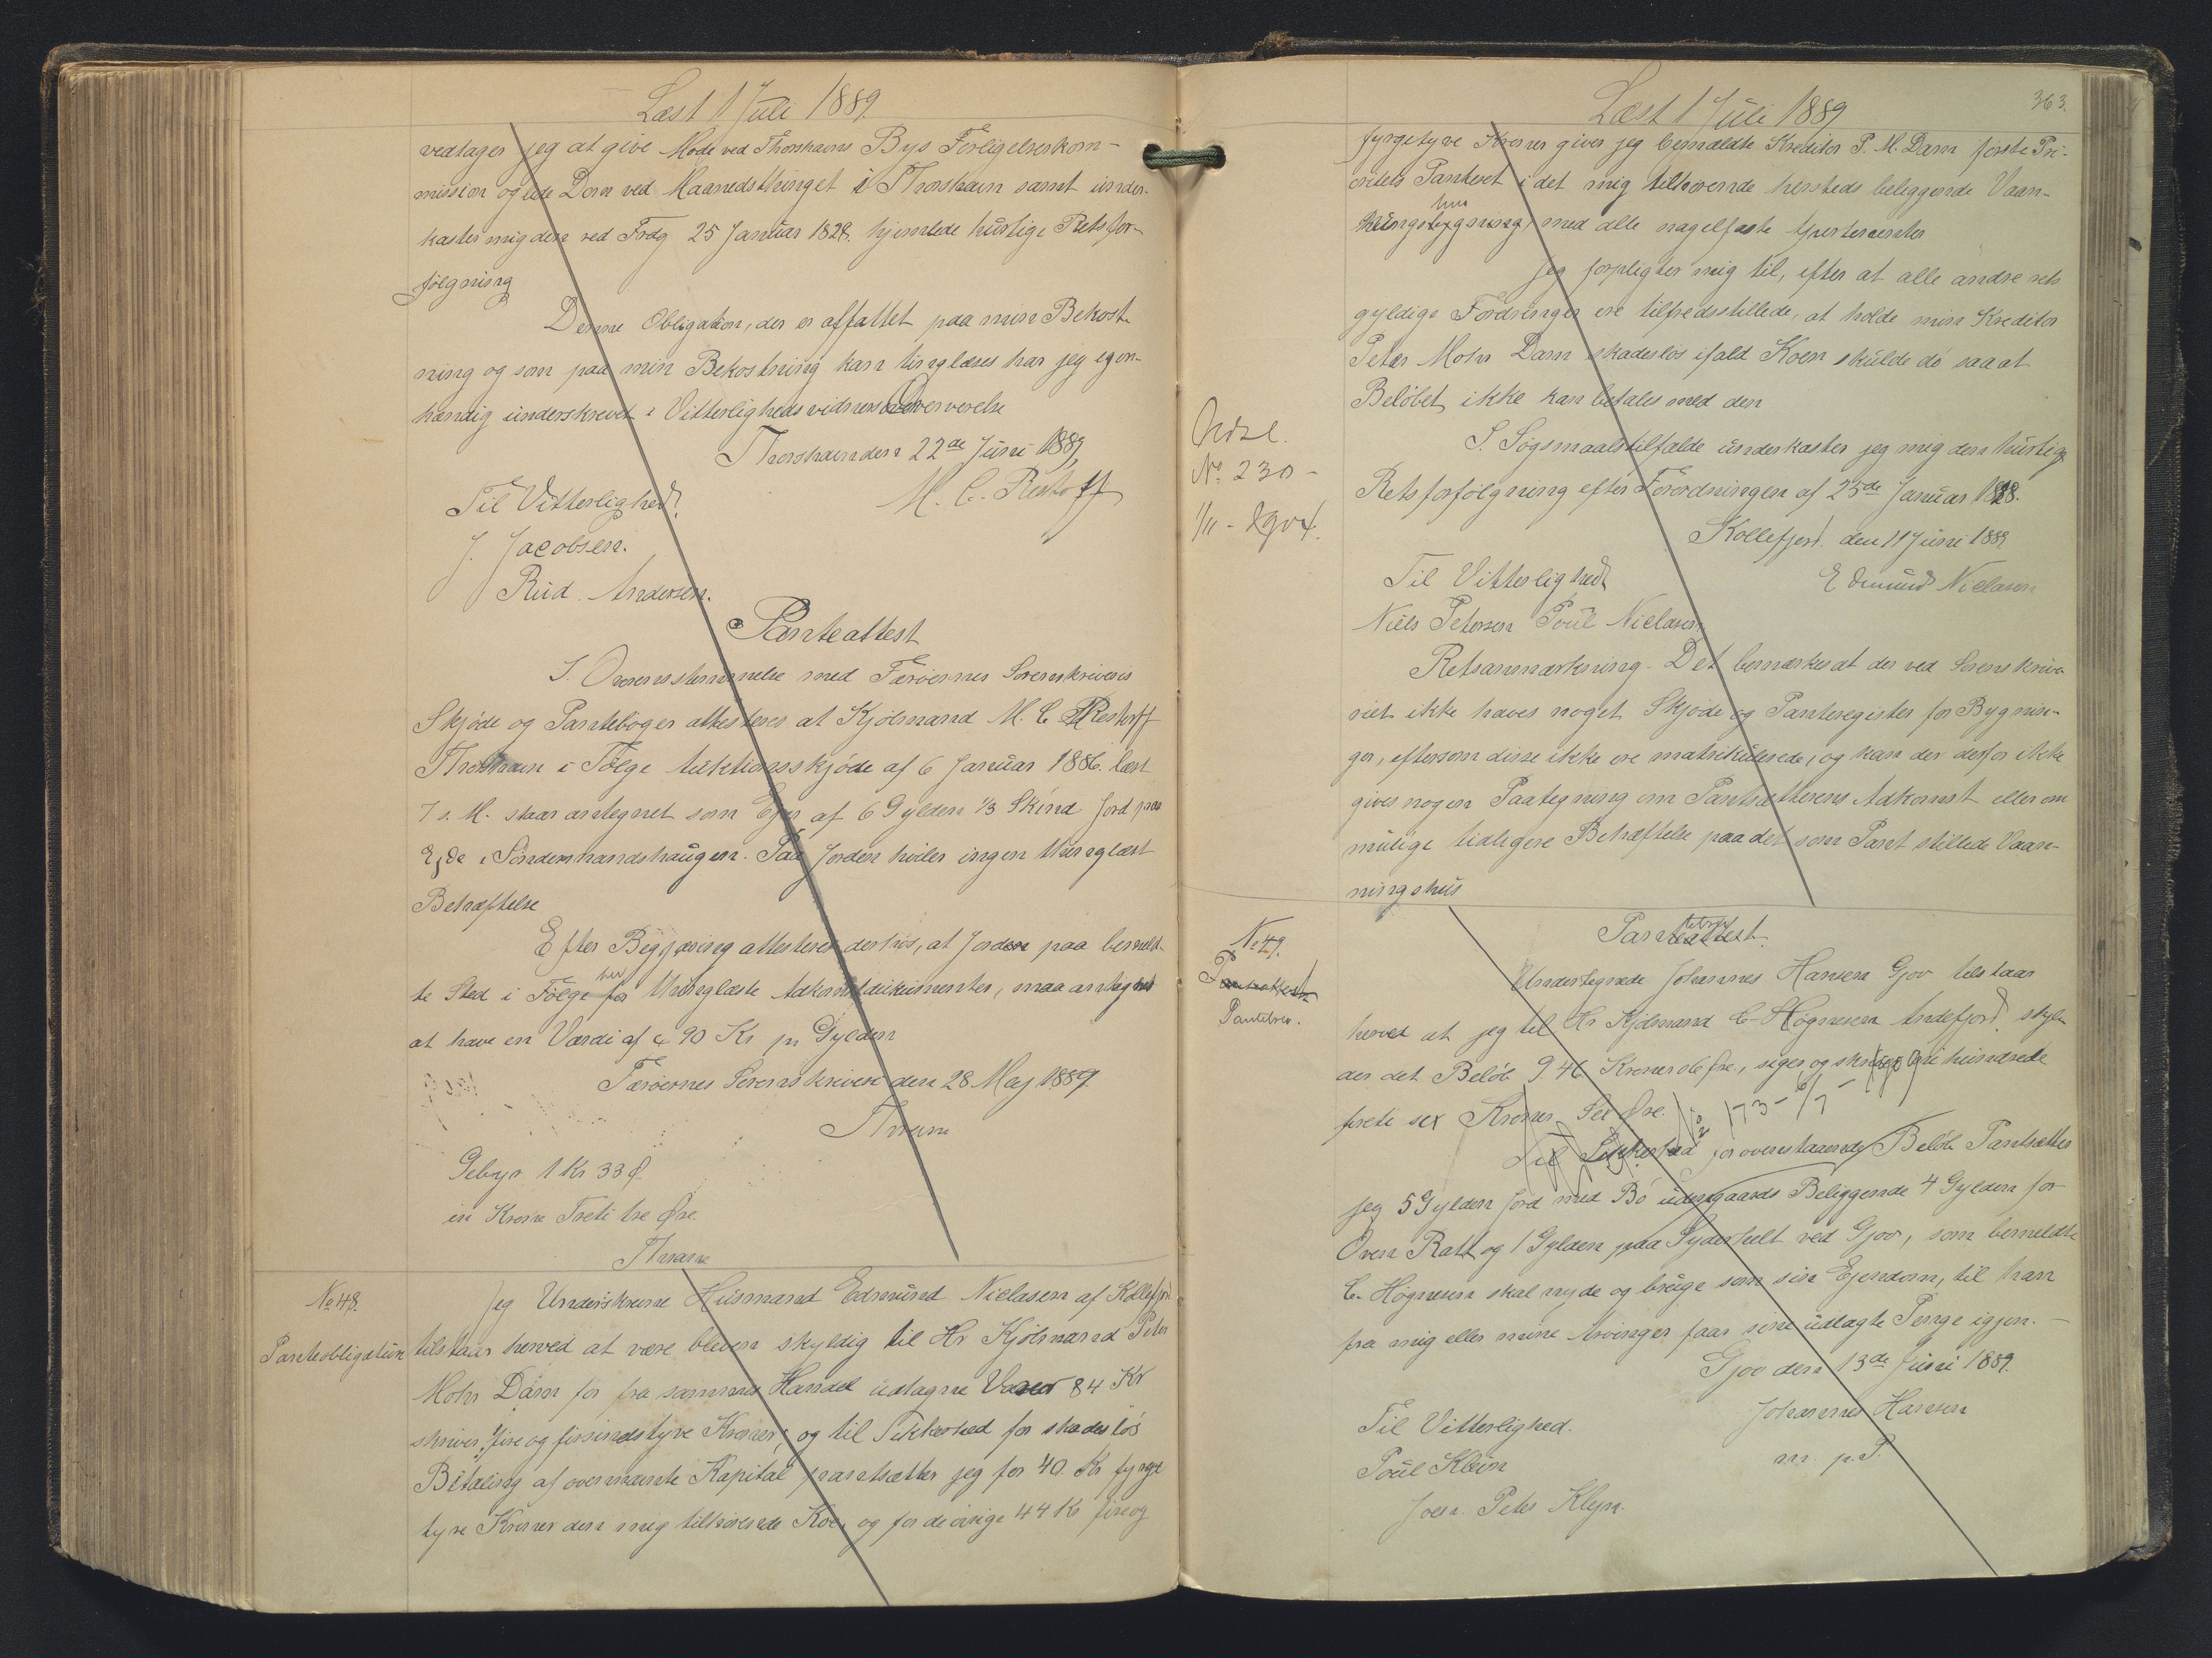 Læst 1 Juli 1889.
vedtager jeg at give Møde ved Thorshavns Bys Forligelseskom-
mission og lide Dom ved Maanedsthinget i Thorshavn samt under-
kaster mig den ved Frdg 25 Januar 1828 hjemlede hurtige Retsfor-
følgning
Denne Obligation, der er affattet paa min Bekost-
ning og som paa min Bekostning kan tinglæses har jeg egen-
hændig underskrevet i Vitterlighedsvidners Overværelse
Thorshavn den 22de Juni 1889
M. C. Restorff
Til Vitterlighed.
J. Jacobsen.
Rud. Andersen.
Panteattest
I. Overensstemmelse med Færøernes Sorenskriveris
Skjøde og Pantebøger attesteres at Kjøbmand M. C. Restorff
Thorshavn i Følge Auktionsskjøde af 6 Januar 1886. læst
7 s. M. staar antegnet som Ejer af 6 Gylden 1/3 Skind Jord paa
Ejde i Søndenmandshaugen. Paa Jorden hviler ingen thinglæst
Behæftelse
Efter Begjæring attesteres derhos, at Jorden paa bemeld-
te Sted i Følge her thinglæste Adkomstdokumenter, maa antages
at have en Værdi af c 90 Kr pr Gylden
Færøernes Sorenskriveri den 28 Maj 1889.
Gebyr 1 Kr 33 Ø
en Krone Treti tre Øre.
No 48.
Panteobligation
Jeg Underskrevne Husmand Edmund Niclasen af Kollefjord
tilstaar herved at være bleven skyldig til Hr Kjøbmand Peter
Mohr Dam for fra sammes Handel udtagne Varer 84 Kr
skriver fire og firsindstyve Kroner, og til Sikkerhed for skadesløs
Betaling af overnævnte Kapital pantsætter jeg for 40. Kr fyrge
tyve Kroner den mig tilhørende Koe, og for de øvrige 44 Kr fire og
Læst 1 Juli 1889
363.
fyrgetyve Kroner giver jeg bemeldte Kreditor P. M. Dam første Pri-
oritets Panteret i det mig tilhørende hersteds beliggende Vaan-
hus
ningsbygning, med alle nagelfaste Apertinenter
Jeg forpligter mig til, efter at alle andre rets
gyldige Fordringer ere tilfredsstillede, at holde min Kreditor
Peter Mohr Dam skadesløs ifald Koen skulde dø saa at
Beløbet ikke kan betales med den
I. Søgsmaalstilfælde underkaster jeg mig den hurtige
Retsforfølgning efter Forordningen af 25de Januar 1828.
Kollefjord. den 11 Juni 1889
Edmund Niclasen
Til Vitterlighed
Niels Petersen Poul Niclasen
No. 230 -
Retsanmærkning. Det bemærkes at der ved Sorenskrive
riet ikke haves noget Skjøde og Panteregister for Bygnin-
ger, eftersom disse ikke ere matrikulerede, og kan der derfor ikke
gives nogen Paategning om Pantsætterens Adkomst eller om
mulige tidligere Behæftelse paa det som Pant stillede Vaan-
ningshus
No 49.
Panteattest
Pantebrev.
Panteattest
Undertegnede Johannes Hansen Gjov tilstaar
herved at jeg til Hr. Kjøbmand C. Høgnesen Andefjord, skyl-
der det Beløb 9.46 Kroner 06 Øre, siger og skriver Ni hundrede
fireti sex Kroner Sex Øre.
173 - 6/7
Til Sikkerhed for ovenstaaende Beløb Pantsætter
jeg 5 Gylden Jord med Bø udengaards Beliggende 4 Gylden for
Oven Ratt og 1 Gylden paa Syderhelt ved Gjov, som bemeldte
C. Høgnesen skal nyde og bruge som sin Ejendom, til han
fra mig eller mine Arvinger faar sine udlagte Penge igjen. -
Gjov den 13de Juni 1889.
Johannes Hansen
m. p. P
Til Vitterlighed.
Poul Klein
Joen Peter Klein.